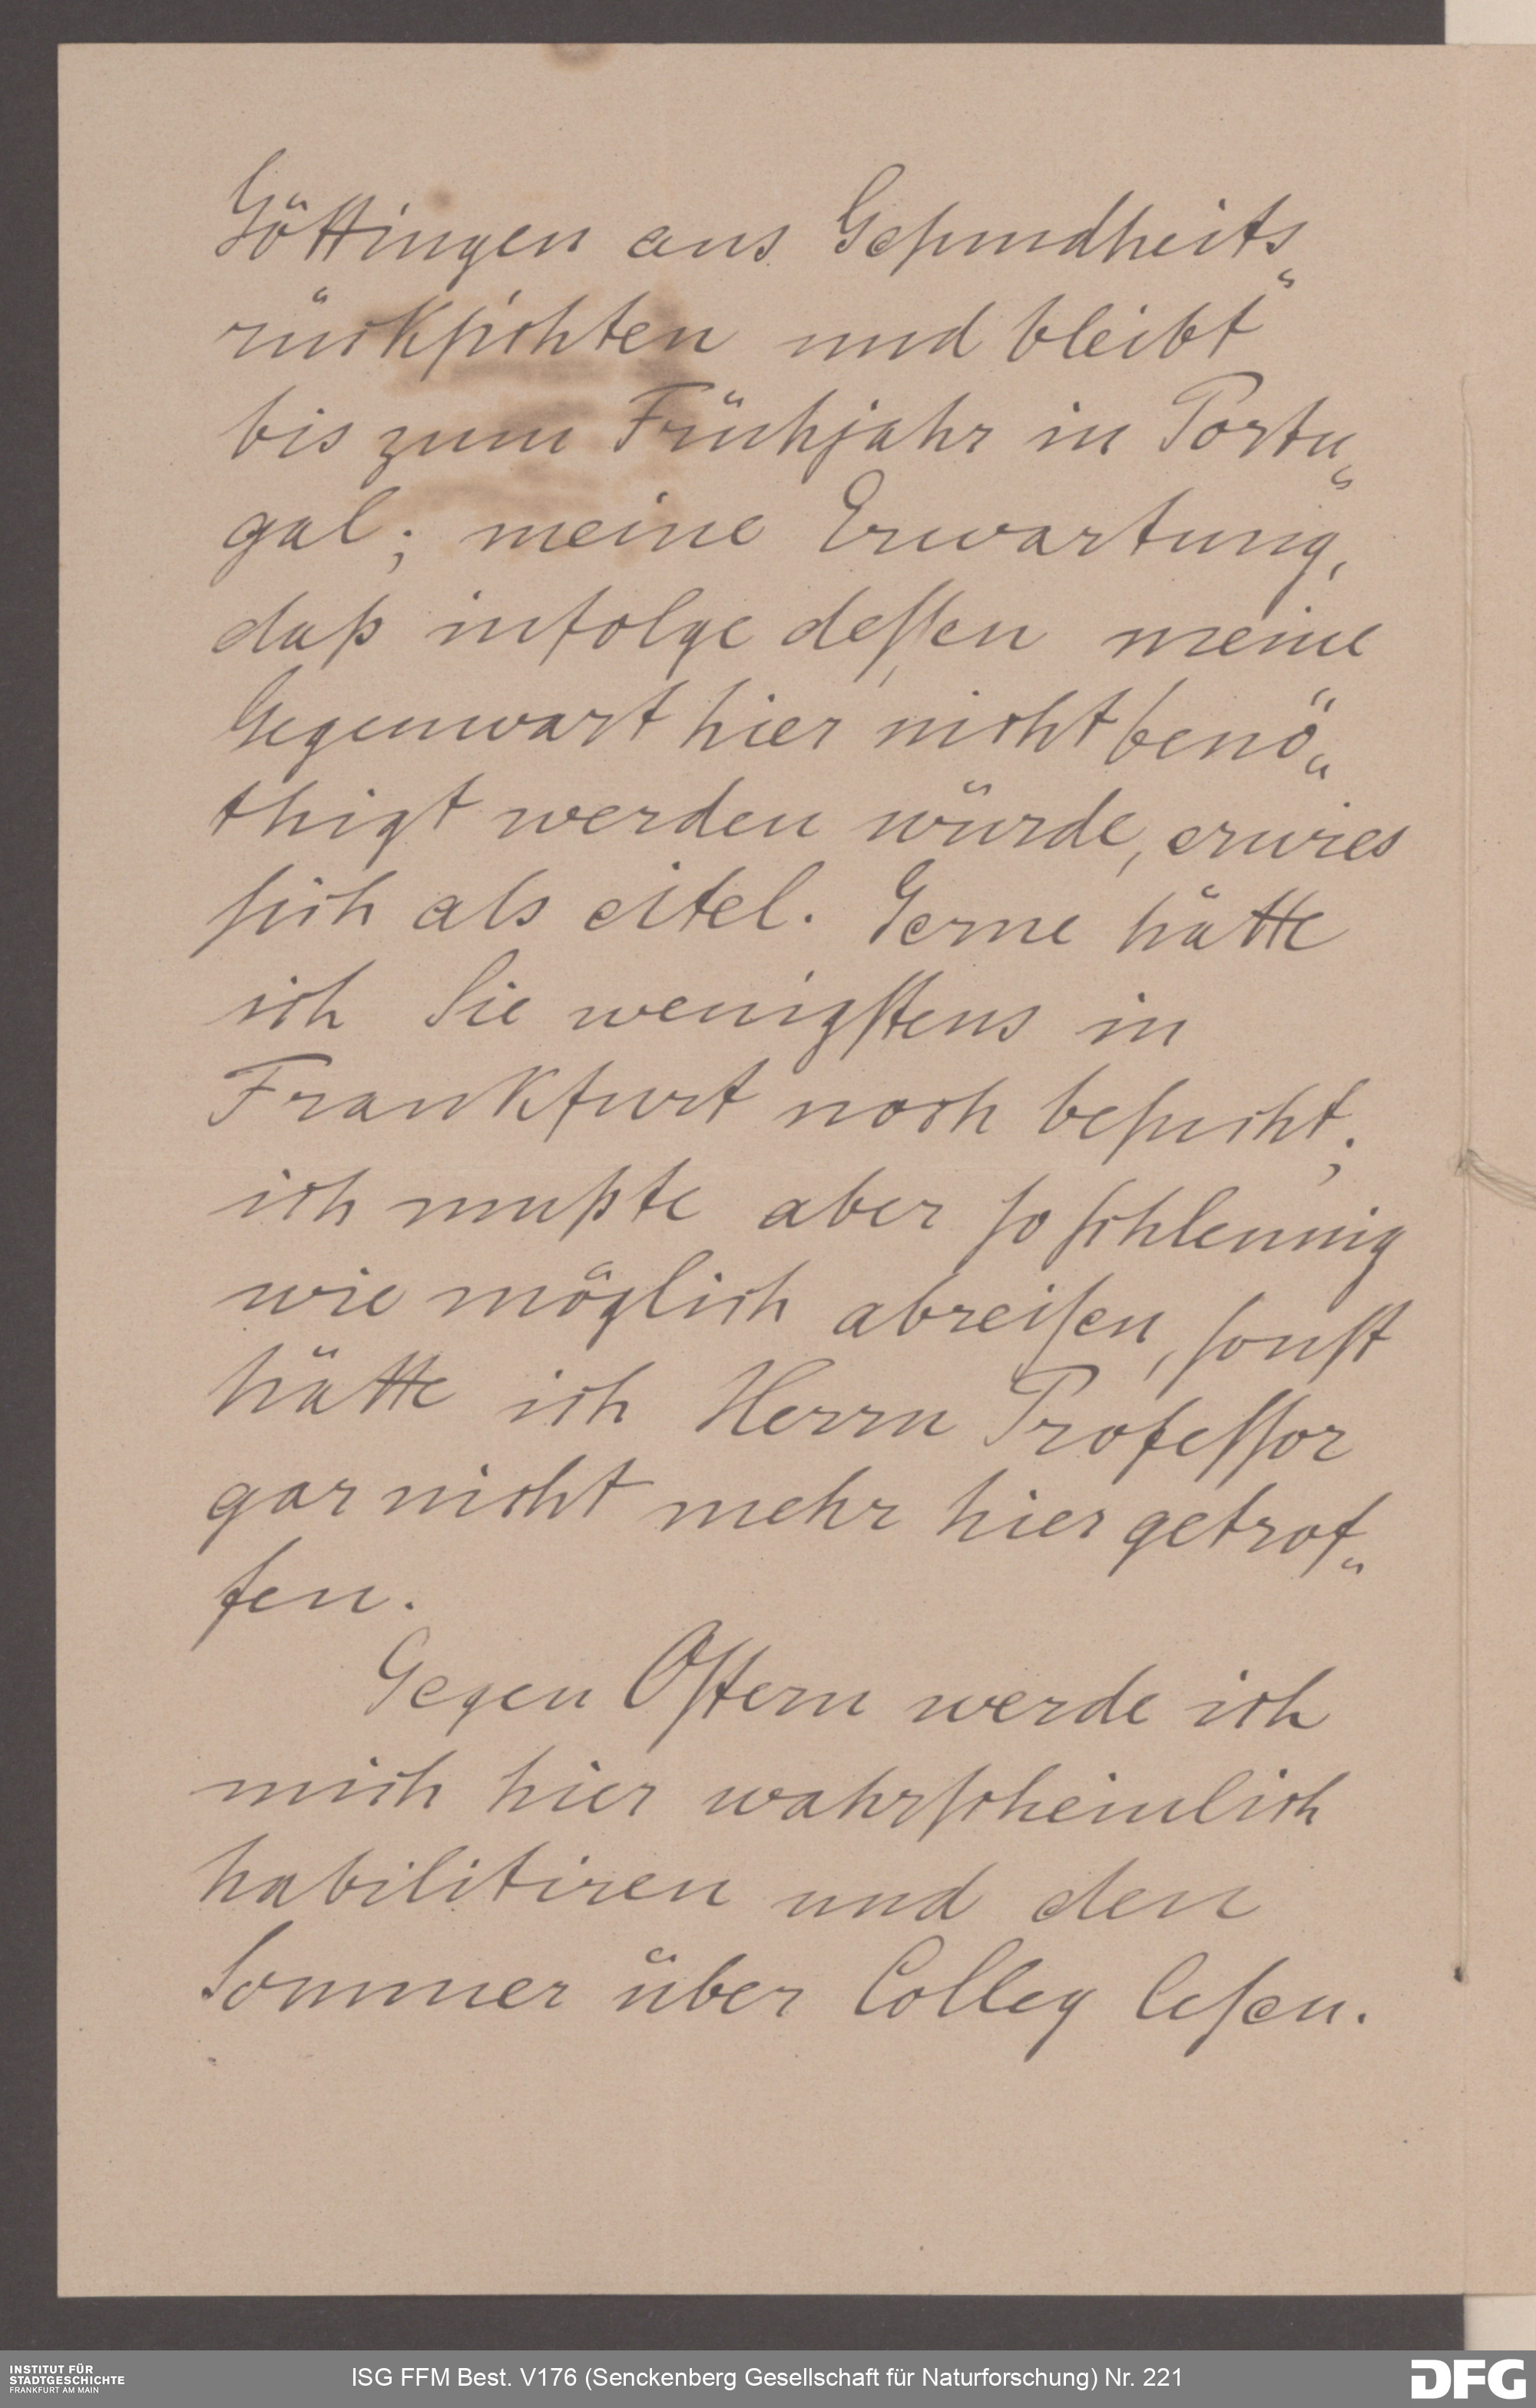 Göttingen aus Gesundheits„
rücksichten und bleibt
bis zum Frühjahr in Portu„
gal; meine Erwartung,
daß infolge dessen meine
Gegenwart hier nicht benö„
thigt werden würde, erwies
sich als eitel. Gerne hätte
ich Sie wenigstens in
Frankfurt noch besucht;
ich mußte aber so schleunig
wie möglich abreisen, sonst
hätte ich Herrn Professor
gar nicht mehr hier getrof„
fen.
Gegen Ostern werde ich
mich hier wahrscheinlich
habilitiren und den
Sommer über Colleg lesen.
INSTITUT FÜR
STADTGESCHICHTE
FRANKFURT AM MAIN
ISG FFM Best. V176 (Senckenberg Gesellschaft für Naturforschung) Nr. 221
DFG